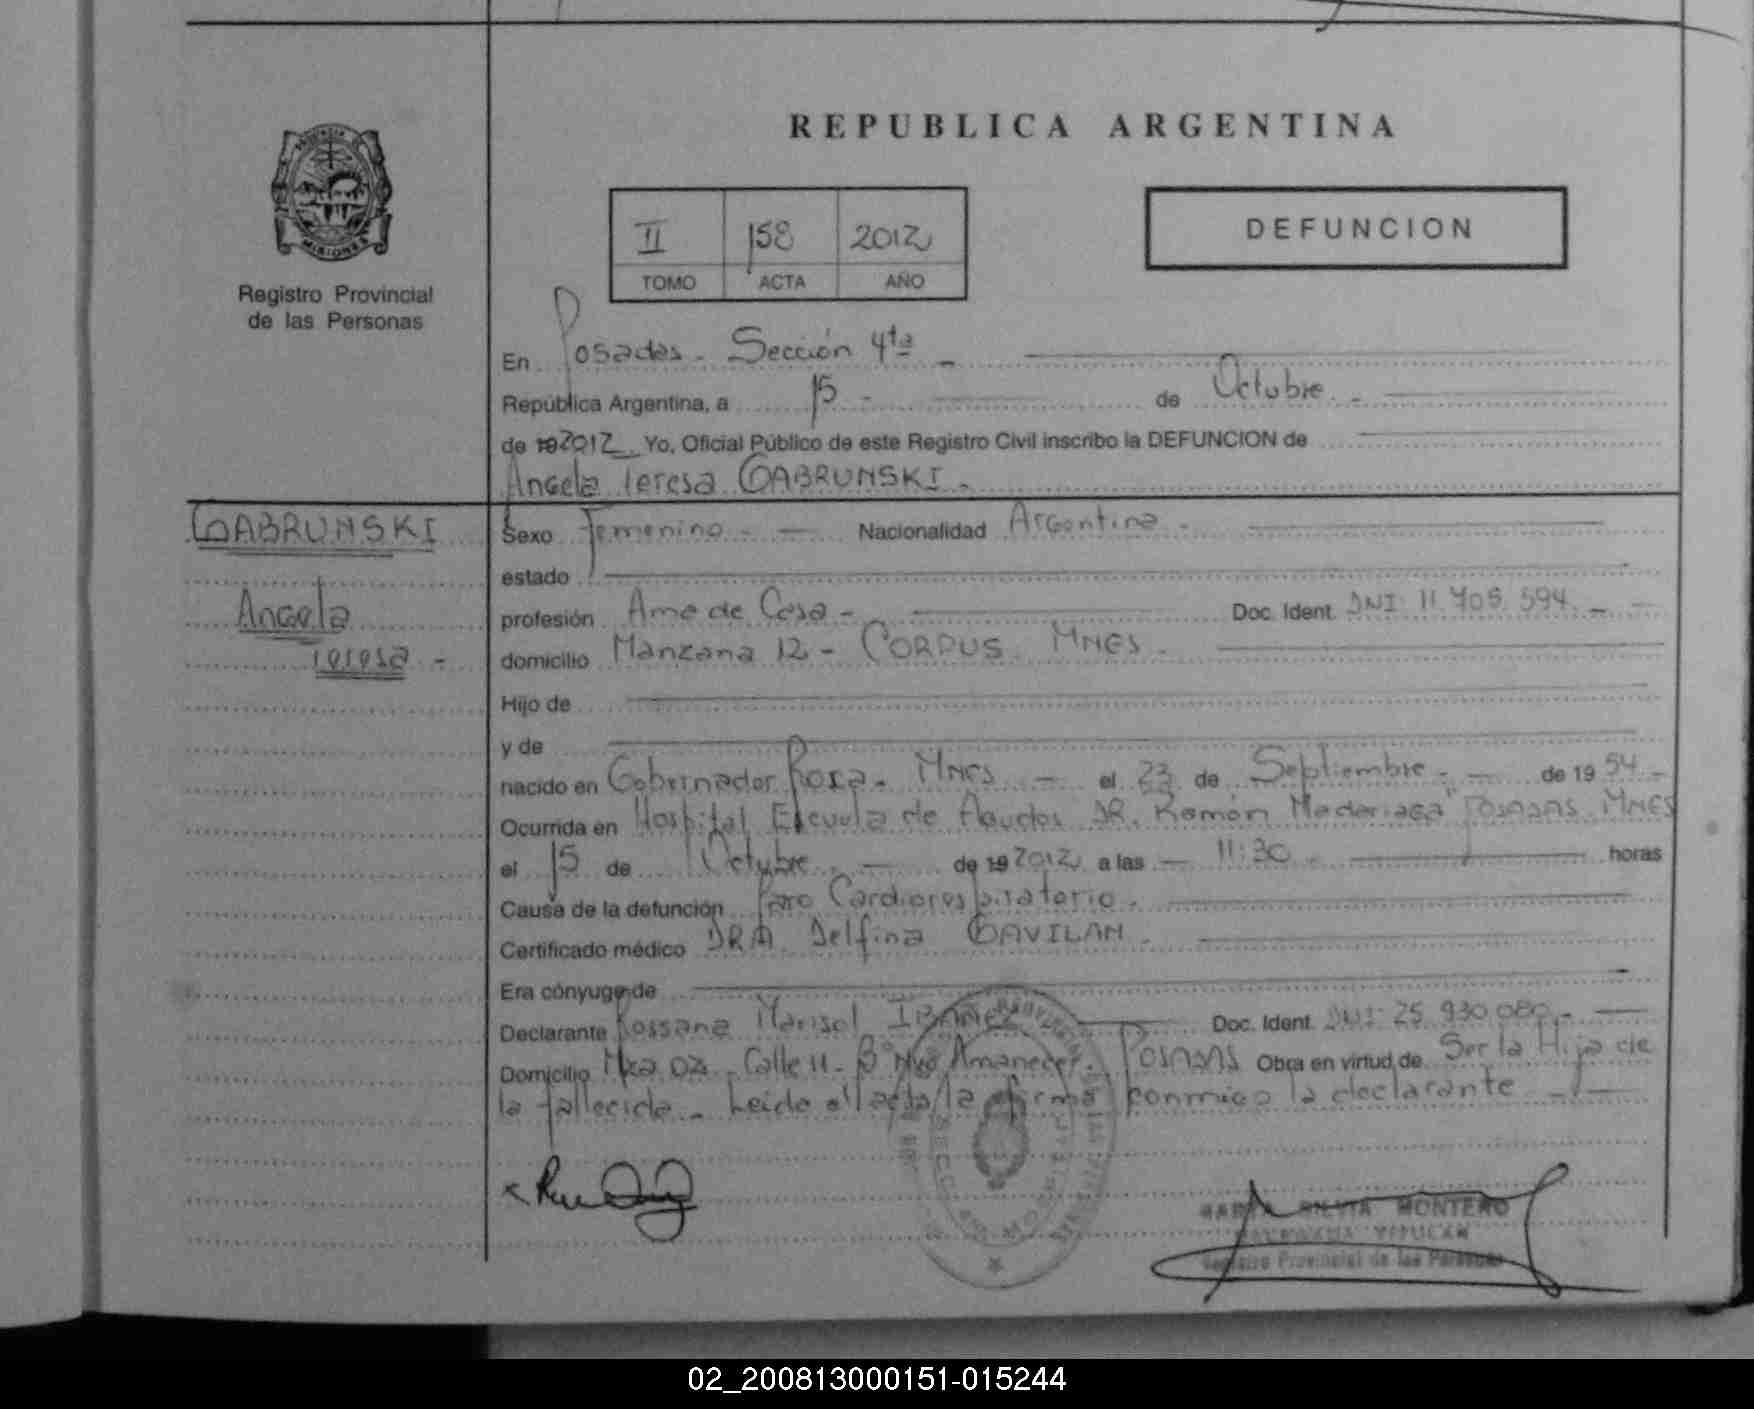 REPUBLICA ARGENTINA
II 158 2012
TOMO ACTA AÑO
DEFUNCION
MISIONES
Registro Provincial
de las Personas
En Posadas - Sección 4ta -
República Argentina, a 15 - de Octubre -
de 19 2012 Yo, Oficial Público de este Registro Civil inscribo la DEFUNCION de
Angela Teresa GABRUNSKI -
GABRUNSKI
Angela
Teresa -
Sexo Femenino - Nacionalidad Argentina -
estado
profesión Ama de Casa - Doc. Ident. DNI: 11.705.594 -
domicilio Manzana 12 - CORPUS. MNES -
Hijo de
y de
nacido en Gobernador Roca - MNES - el 23 de Septiembre - de 19 54 -
Ocurrida en Hospital Escuela de Agudos DR. Ramón Madariaga" POSADAS. MNES
el 15 de Octubre - de 19 2012 a las - 11:30 - horas
Cause de la defunción Paro Cardiorespiratorio -
Certificado médico DRA. Delfina GAVILAN -
Era cónyuge de
Declarante Rossana Marisol IBAÑEZ Doc. Ident. DNI: 25.930.080 -
Domicilio Mza 02 - Calle 11 - B° Nvo Amanecer - POSADAS Obra en virtud de Ser la Hija de
la fallecida - Leída el acta la firma conmigo la declarante -
MONTERO
TITULAR
Registro Provincial de las Personas
02_200813000151-015244